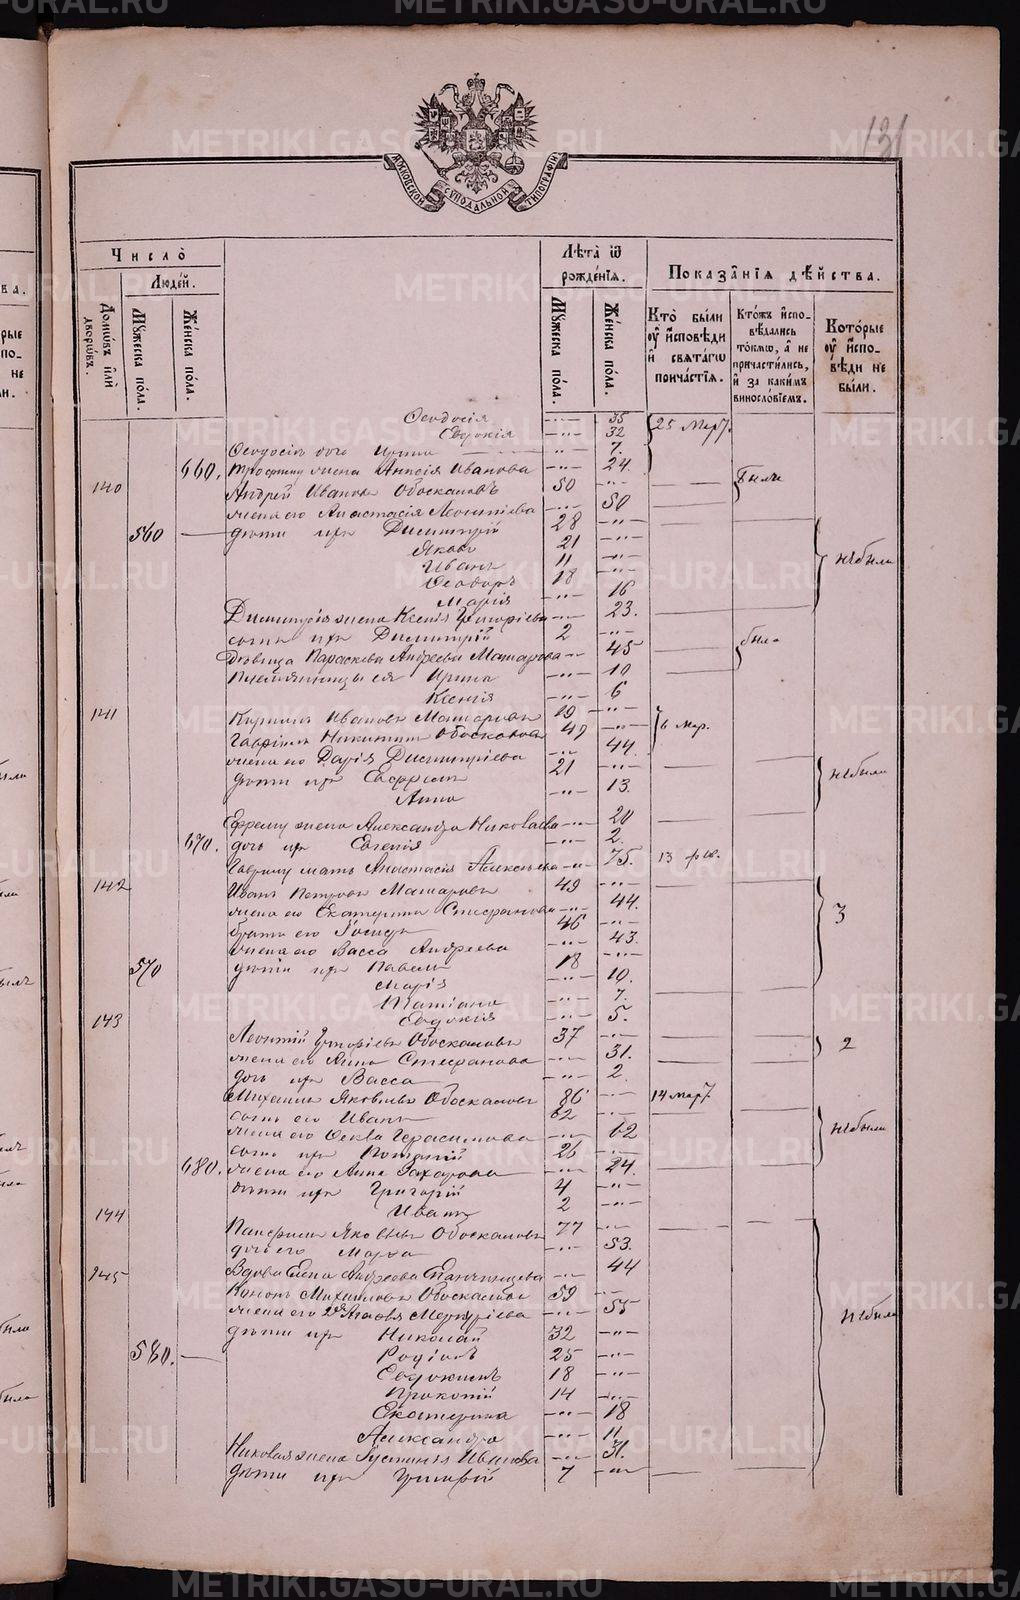 METRIKI.GASO-URAL.RU
131
МОСКОВСКОЙ СѴНОДАЛЬНОЙ ТИПОГРАФІИ
Число̀
Людей.
Домѡвъ или дворѡвъ.
Мꙋжеска пола.
Женска пола.
Лѣта ѿ рожденїѧ.
Мꙋжеска пола.
Женска пола.
Показанїѧ дѣйства.
Кто были ᲂу исповѣди и свѧтагѡ причастїѧ.
Ктожъ исповѣдались токмѡ, а не причастились, и за какимъ винословіемъ.
Которые ᲂу исповѣди не были.
Ѳеодосія -"- 35
Евдокія -"- 32 25 Март.
Ѳеодосіи дочь Ирина -"- 7.
660. Трофиму жена Анисія Иванова -"- 24.
140 Андрей Ивановъ Обоскаловъ 50 -"- были
жена его Анастасія Леонтіева -"- 50
560 дѣти ихъ Димитрій 28 -"-
Яковъ 21 -"-
Иванъ 11 -"- не были
Ѳеодоръ 18 -"-
Марія -"- 16
Димитрія жена Ксенія Григоріева -"- 23.
сынъ ихъ Димитрій 2 -"-
Дѣвица Параскева Андреева Машарова -"- 45 была
Племянницы ея Ирина -"- 10
Ксенія -"- 6
141 Кириллъ Ивановъ Машаровъ 19 -"- 6 Мар.
Гавріилъ Никитинъ Обоскаловъ 49 -"-
жена его Дарія Димитріева -"- 44.
дѣти ихъ Ефремъ 21 -"- не были
Анна -"- 13.
Ефрему жена Александра Николаева -"- 20
670. дочь ихъ Евгенія -"- 2.
Гаврилу мать Анастасія Алексѣева -"- 75. 13 фев.
142 Иванъ Петровъ Машаровъ 49 -"-
жена его Екатерина Стефанова -"- 44.
братъ его Іосифъ 46 -"- 3
жена его Васса Андреева -"- 43.
570 дѣти ихъ Павелъ 18 -"-
Марія -"- 10.
Татіана -"- 7.
143 Евдокія -"- 5.
Леонтій Григоріевъ Обоскаловъ 37 -"-
жена его Анна Стефанова -"- 31. 2
дочь ихъ Васса -"- 2.
Михаилъ Яковлевъ Обоскаловъ 86 -"- 14 март
сынъ его Иванъ 62 -"-
жена его Ѳекла Герасимова -"- 62 не были
сынъ ихъ Потапій 26 -"-
680. жена его Анна Захарова -"- 24.
дѣти ихъ Григорій 4 -"-
Иванъ 2 -"-
144 Панфилъ Яковлевъ Обоскаловъ 77 -"-
дочь его Марѳа -"- 53.
145 Вдова Елена Андреева -"- 44
Кононъ Михаиловъ Обоскаловъ 59 -"-
жена его 2я Агаѳія Меркуріева -"- 55 не были
дѣти ихъ Николай 32 -"-
580. Родіонъ 25 -"-
Евдокимъ 18 -"-
Прокопій 14 -"-
Екатерина -"- 18
Александра -"- 11
Николая жена Іустинія Иванова -"- 31.
дѣти ихъ Григорій 7 -"-